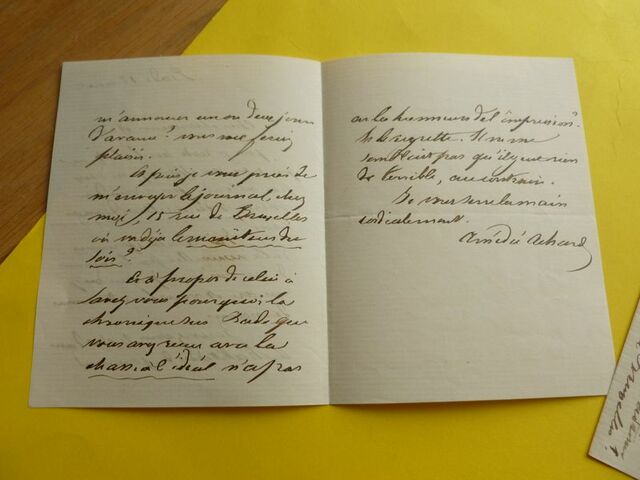 m'annoncer un ou deux jours
d'avance? vous me feriez
plaisir.
Et puis je vous prierais de
m'envoyer le journal, chez
moi, 15 rue de Bruxelles
où va déjà le moniteur du
soir?
Et à propos de celui-là
savez vous pourquoi la
chronique sur Bade que
vous avez reçu avec la
chasse à l'idéal n'a pas
eu les honneurs de l'impression?
Je la regrette. Il ne me
semblait pas qu'il y eut rien
de terrible, au contraire.
Je vous serre la main
cordialement.
Amédée Achard